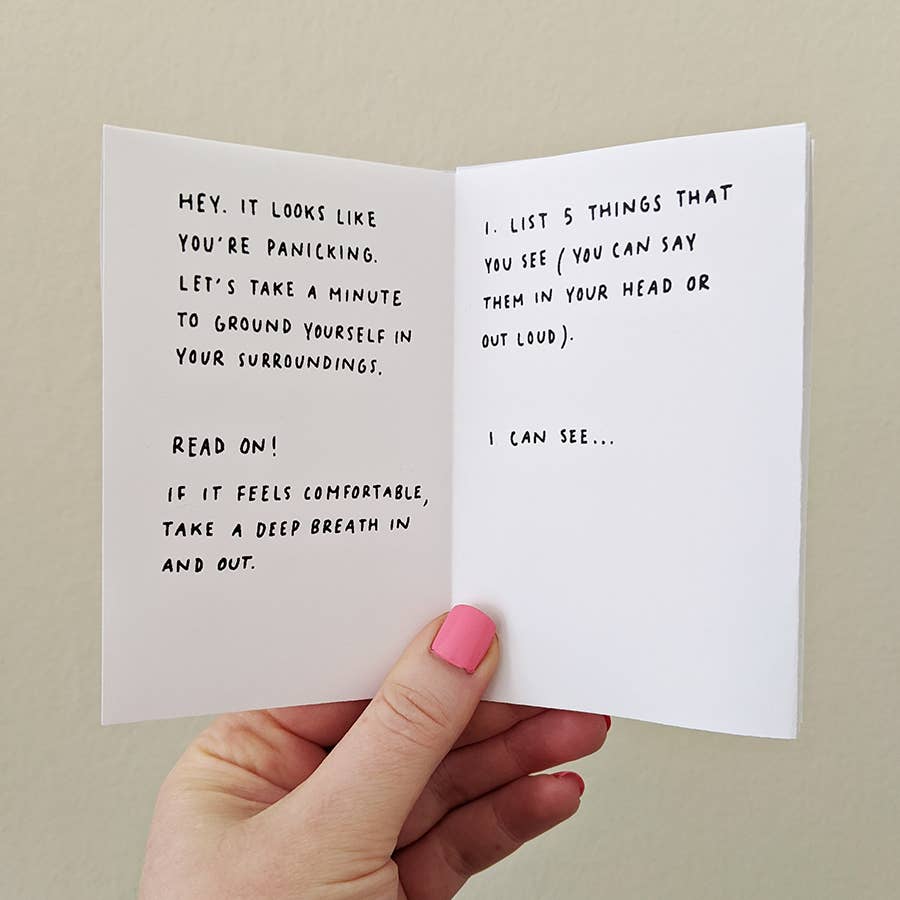 HEY. IT LOOKS LIKE
YOU'RE PANICKING.
LET'S TAKE A MINUTE
TO GROUND YOURSELF IN
YOUR SURROUNDINGS.
READ ON!
IF IT FEELS COMFORTABLE,
TAKE A DEEP BREATH IN
AND OUT.
1. LIST 5 THINGS THAT
YOU SEE (YOU CAN SAY
THEM IN YOUR HEAD OR
OUT LOUD).
I CAN SEE...